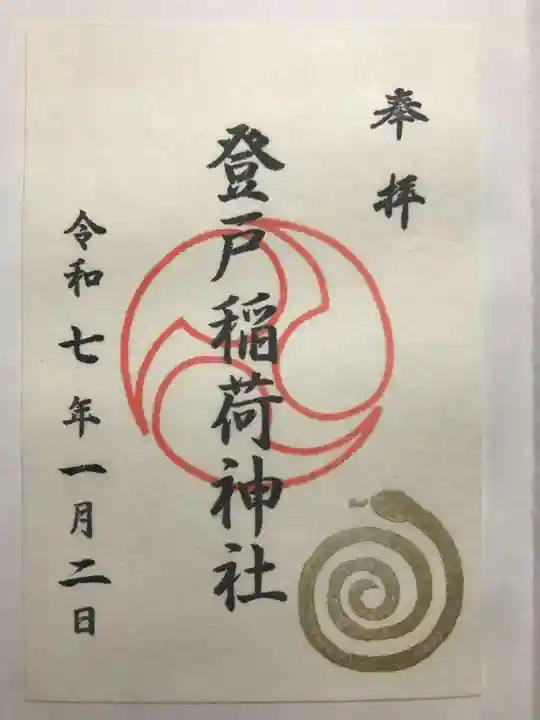 奉拝
登戸稲荷神社
令和七年一月二日